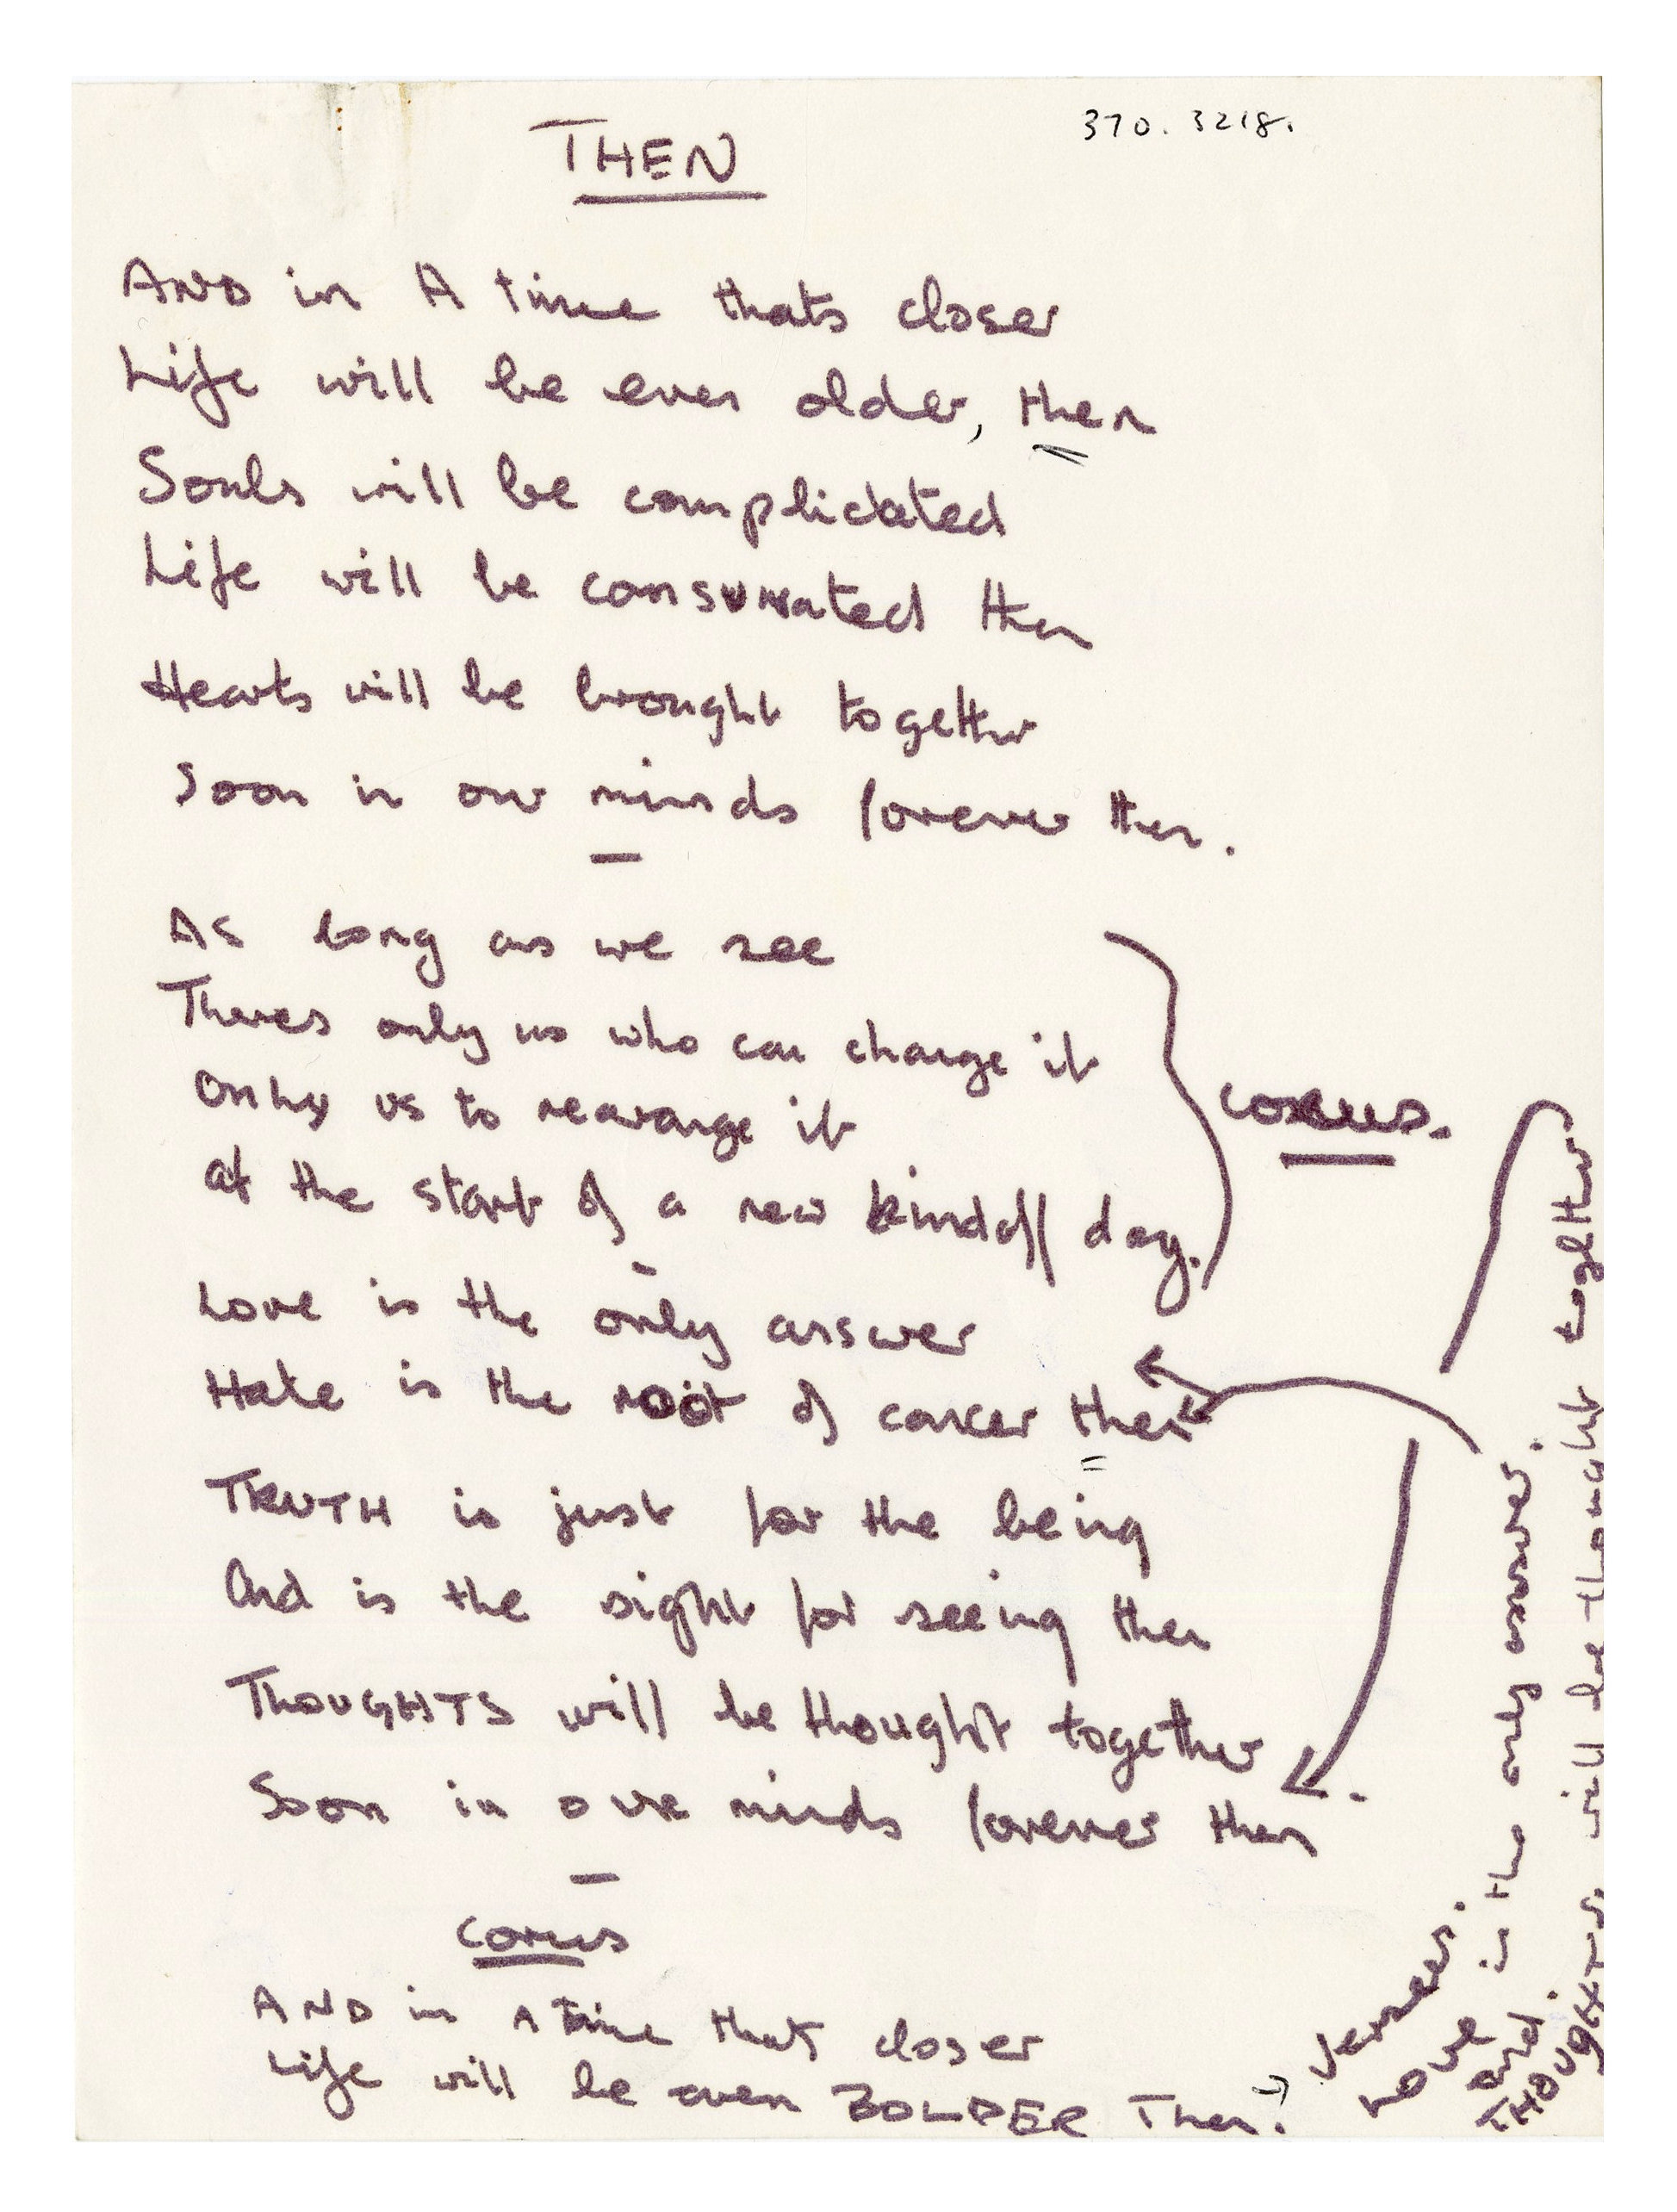 370. 3218.
THEN
AND in A time thats closer
Life will be even older, then
Souls will be complicated
Life will be consumated then
Hearts will be brought together
Soon in our minds forever then.
As long as we see
Theres only us who can change it
Only us to rearange it
at the start of a new kindoff day.
corus.
Love is the only answer
Hate is the root of cancer then
TRUTH is just for the being
And is the sight for seeing then
THOUGHTS will be thought together
Soon in our minds forever then
corus
AND in A time that closer
Life will be even BOLDER Then.
verses.
Love is the only answer.
and.
THOUGHTS will be thought together